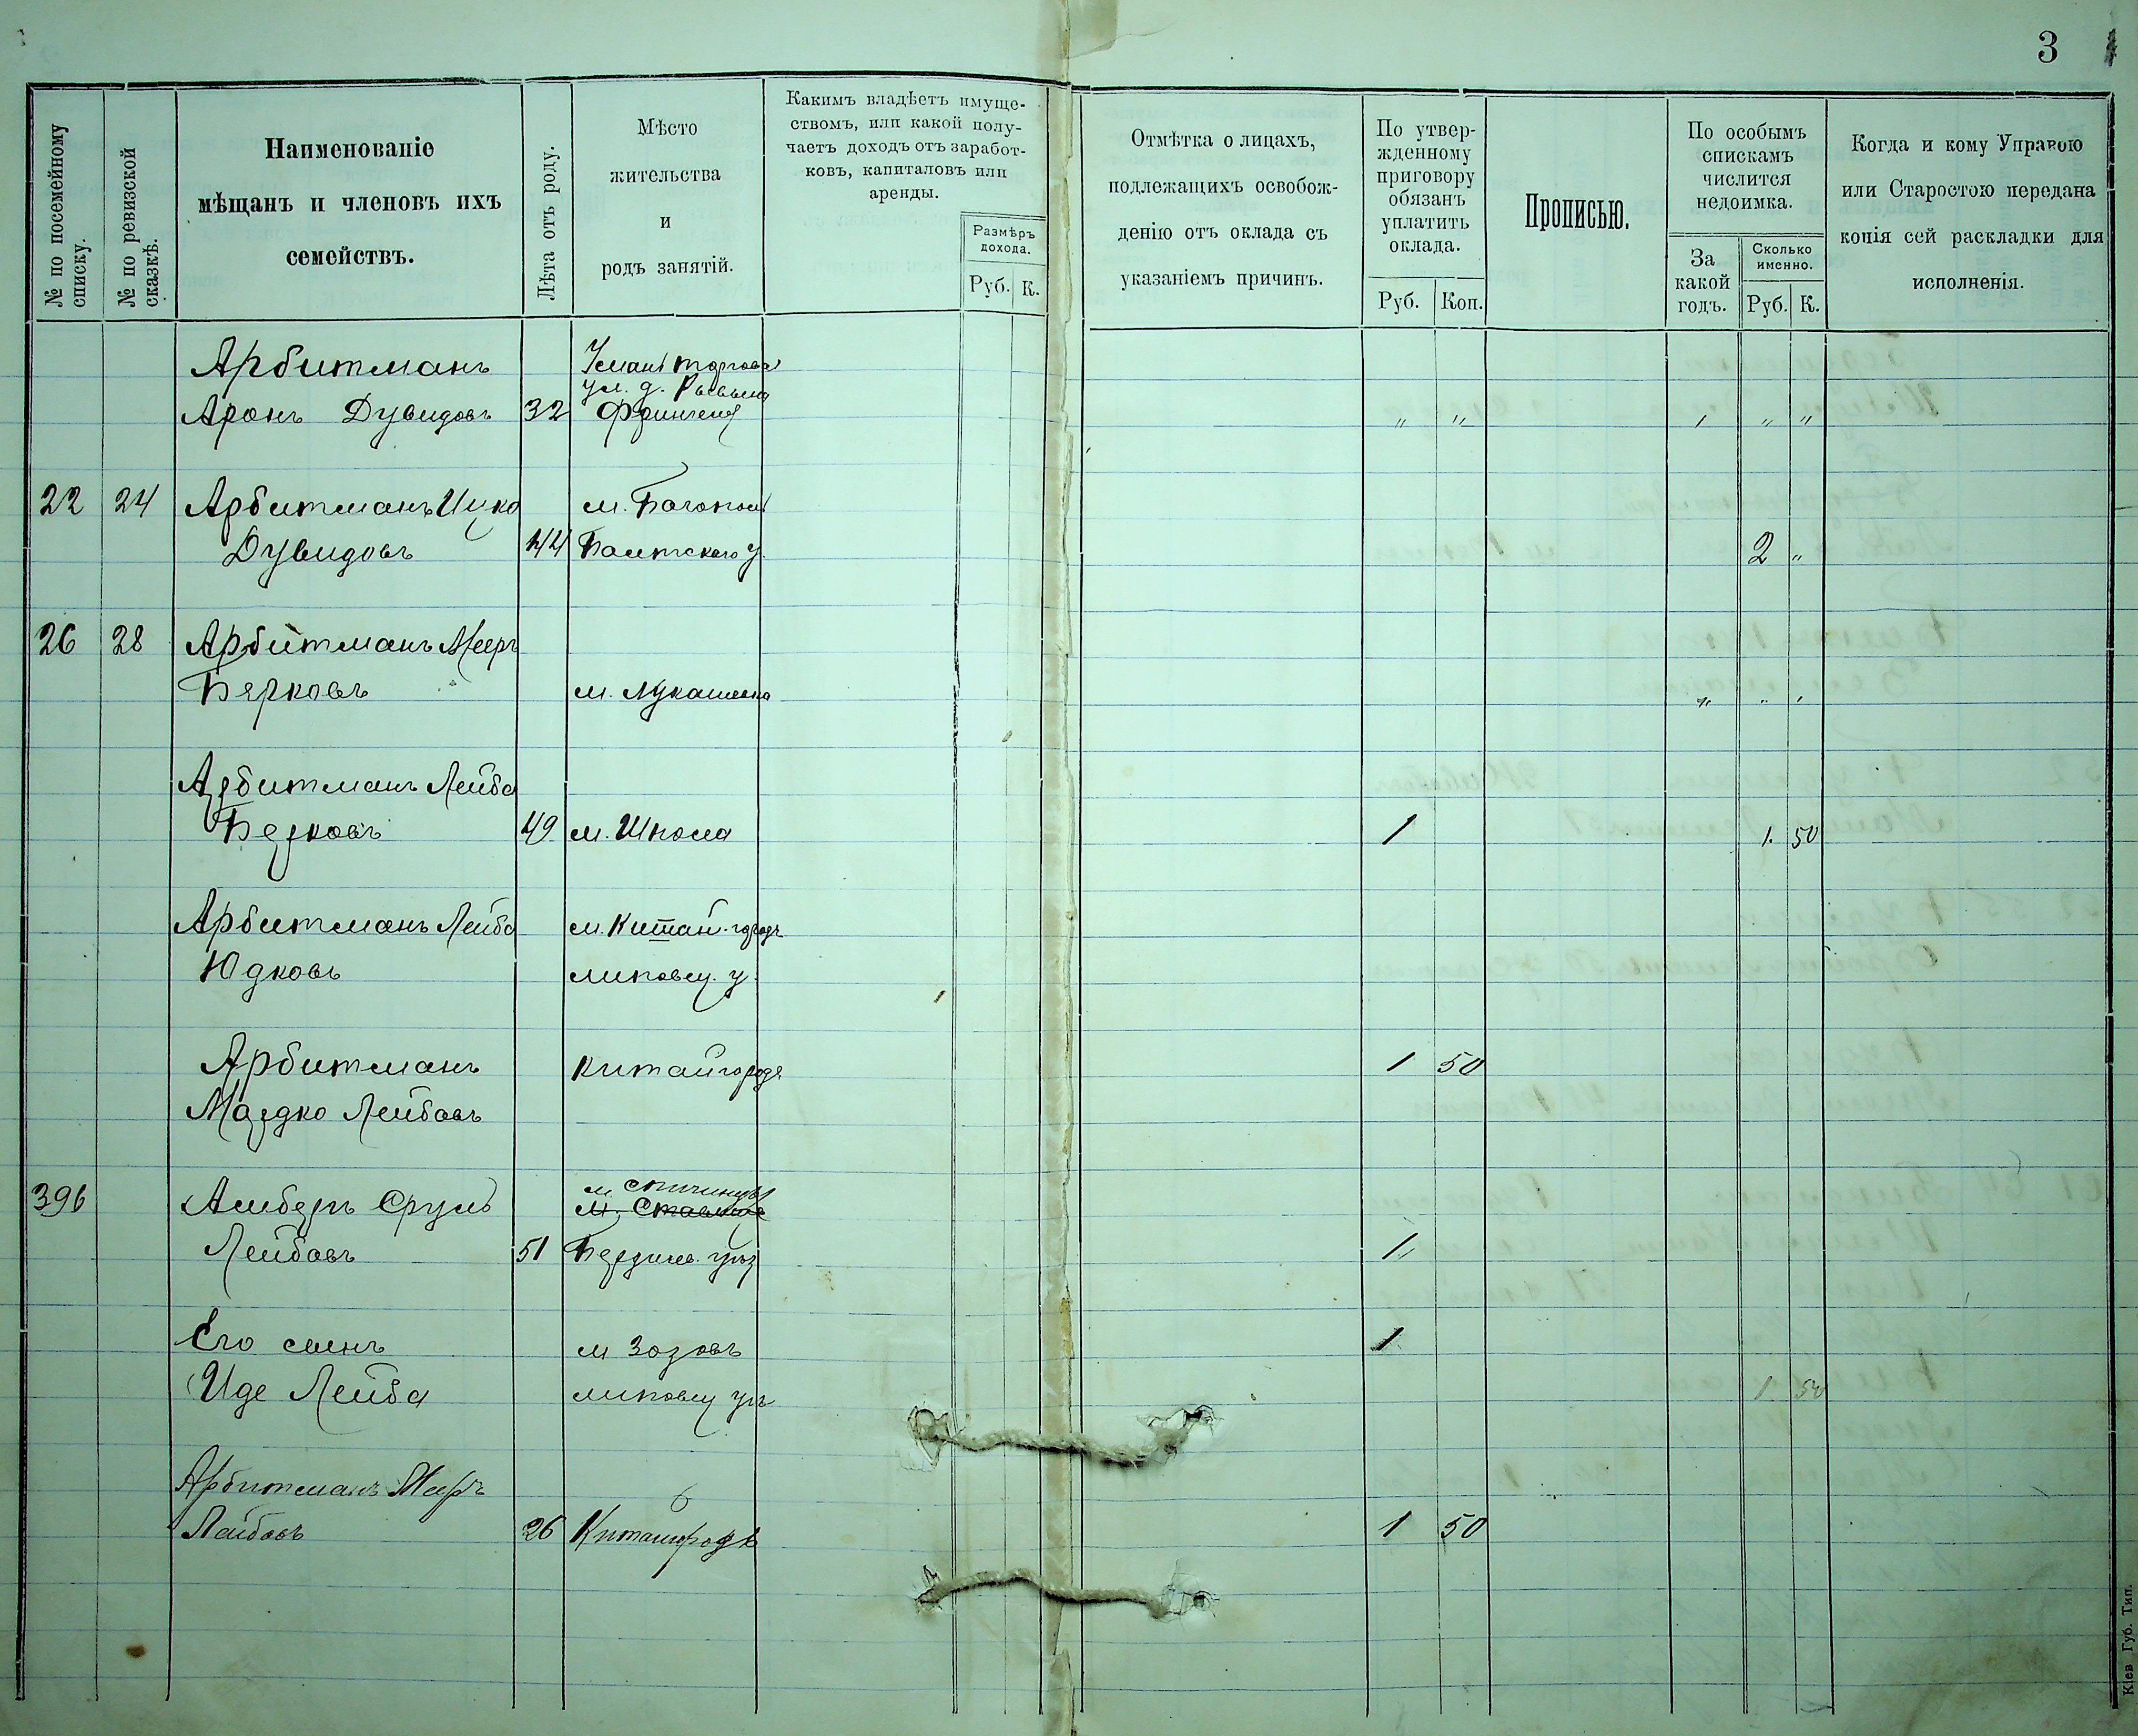 3
№ по посемейному списку.
№ по ревизской сказкѣ.
Наименованіе
мѣщанъ и членовъ ихъ
семействъ.
Лѣта отъ роду.
Мѣсто
жительства
и
родъ занятій.
Какимъ владѣетъ имуще-
ствомъ, или какой полу-
чаетъ доходъ отъ заработ-
ковъ, капиталовъ или
аренды.
Размѣръ
дохода.
Руб. К.
Отмѣтка о лицахъ,
подлежащихъ освобож-
денію отъ оклада съ
указаніемъ причинъ.
По утвер-
жденному
приговору
обязанъ
уплатить
оклада.
Руб. Коп.
Прописью.
По особымъ
спискамъ
числится
недоимка.
За
какой
годъ.
Сколько
именно.
Руб. К.
Когда и кому Управою
или Старостою передана
копія сей раскладки для
исполненія.
Арбитманъ
Аронъ Дувидовъ 32 " " " " "
22 24 Арбитманъ Ицко м. Богополь
Дувидовъ 44 Балтскаго у. 2 "
26 28 Арбитманъ Мееръ
Берковъ м. Лукашевка " " "
Арбитманъ Лейба
Берковъ 49 м. Шпола 1 1. 50
Арбитманъ Лейба м. Китай-городъ
Юдковъ липовец. у.
Арбитманъ Китайгородъ 1 50
Мордко Лейбовъ
396 Амберъ Сруль м.
м. Ставище
Лейбовъ 51 Бердичев. уѣз 1 "
Его сынъ м Зозовъ 1
Иде Лейба липовец уѣ 1 50
Арбитманъ Меръ
Лейбовъ 26 Китайгородъ 1 50
Кіев Губ. Тип.